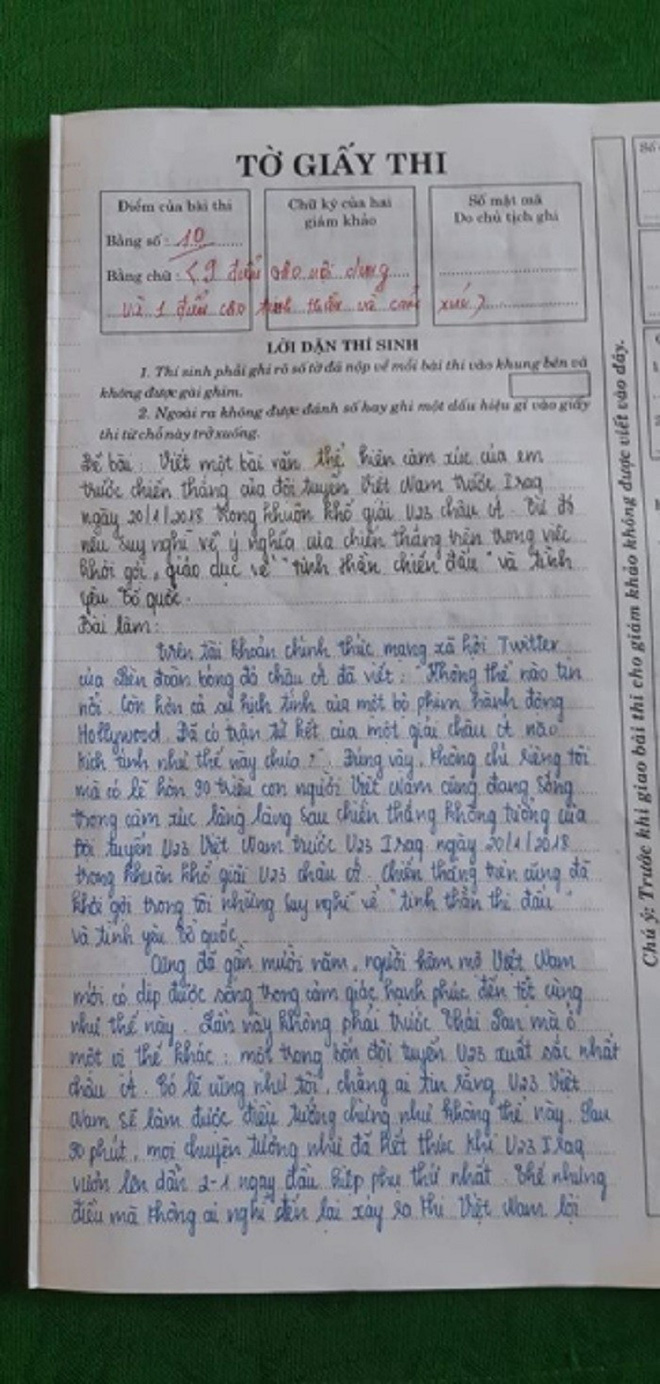 TỜ GIẤY THI
Điểm của bài thi
Bằng số: 10
Bằng chữ: (9 điểm cho nội dung
và 1 điểm cho tinh thần và cảm xúc)
Chữ ký của hai
giám khảo
Số mật mã
Do chủ tịch ghi
LỜI DẶN THÍ SINH
1. Thí sinh phải ghi rõ số tờ đã nộp về mỗi bài thi vào khung bên và
không được gài ghim.
2. Ngoài ra không được đánh số hay ghi một dấu hiệu gì vào giấy
thi từ chỗ này trở xuống.
Đề bài: Viết một bài văn thể hiện cảm xúc của em
trước chiến thắng của đội tuyển Việt Nam trước Iraq
ngày 20/1/2018 trong khuôn khổ giải U23 châu Á. Từ đó
nêu suy nghĩ về ý nghĩa của chiến thắng trên trong việc
khơi gợi, giáo dục về "tinh thần chiến đấu" và tình
yêu Tổ quốc.
Bài làm:
Trên tài khoản chính thức mạng xã hội Twitter
của Liên đoàn bóng đá châu Á đã viết: "Không thể nào tin
nổi. Còn hơn cả sự kịch tính của một bộ phim hành động
Hollywood. Đã có trận tứ kết của một giải châu Á nào
kịch tính như thế này chưa?". Đúng vậy, không chỉ riêng tôi
mà có lẽ hơn 90 triệu con người Việt Nam cũng đang sống
trong cảm xúc lâng lâng sau chiến thắng không tưởng của
đội tuyển U23 Việt Nam trước U23 Iraq ngày 20/1/2018
trong khuôn khổ giải U23 châu Á. Chiến thắng trên cũng đã
khơi gợi trong tôi những suy nghĩ về "tinh thần thi đấu"
và tình yêu Tổ quốc.
Cũng đã gần mười năm, người hâm mộ Việt Nam
mới có dịp được sống trong cảm giác hạnh phúc đến tột cùng
như thế này. Lần này không phải trước Thái Lan mà ở
một vị thế khác: một trong bốn đội tuyển U23 xuất sắc nhất
châu Á. Có lẽ cũng như tôi, chẳng ai tin rằng U23 Việt
Nam sẽ làm được điều tưởng chừng như không thể này. Sau
90 phút, mọi chuyện tưởng như đã kết thúc khi U23 Iraq
vươn lên dẫn 2-1 ngay đầu hiệp phụ thứ nhất. Thế nhưng
điều mà không ai nghĩ đến lại xảy ra khi Việt Nam lội
Chú ý: Trước khi giao bài thi cho giám khảo không được viết vào đây.